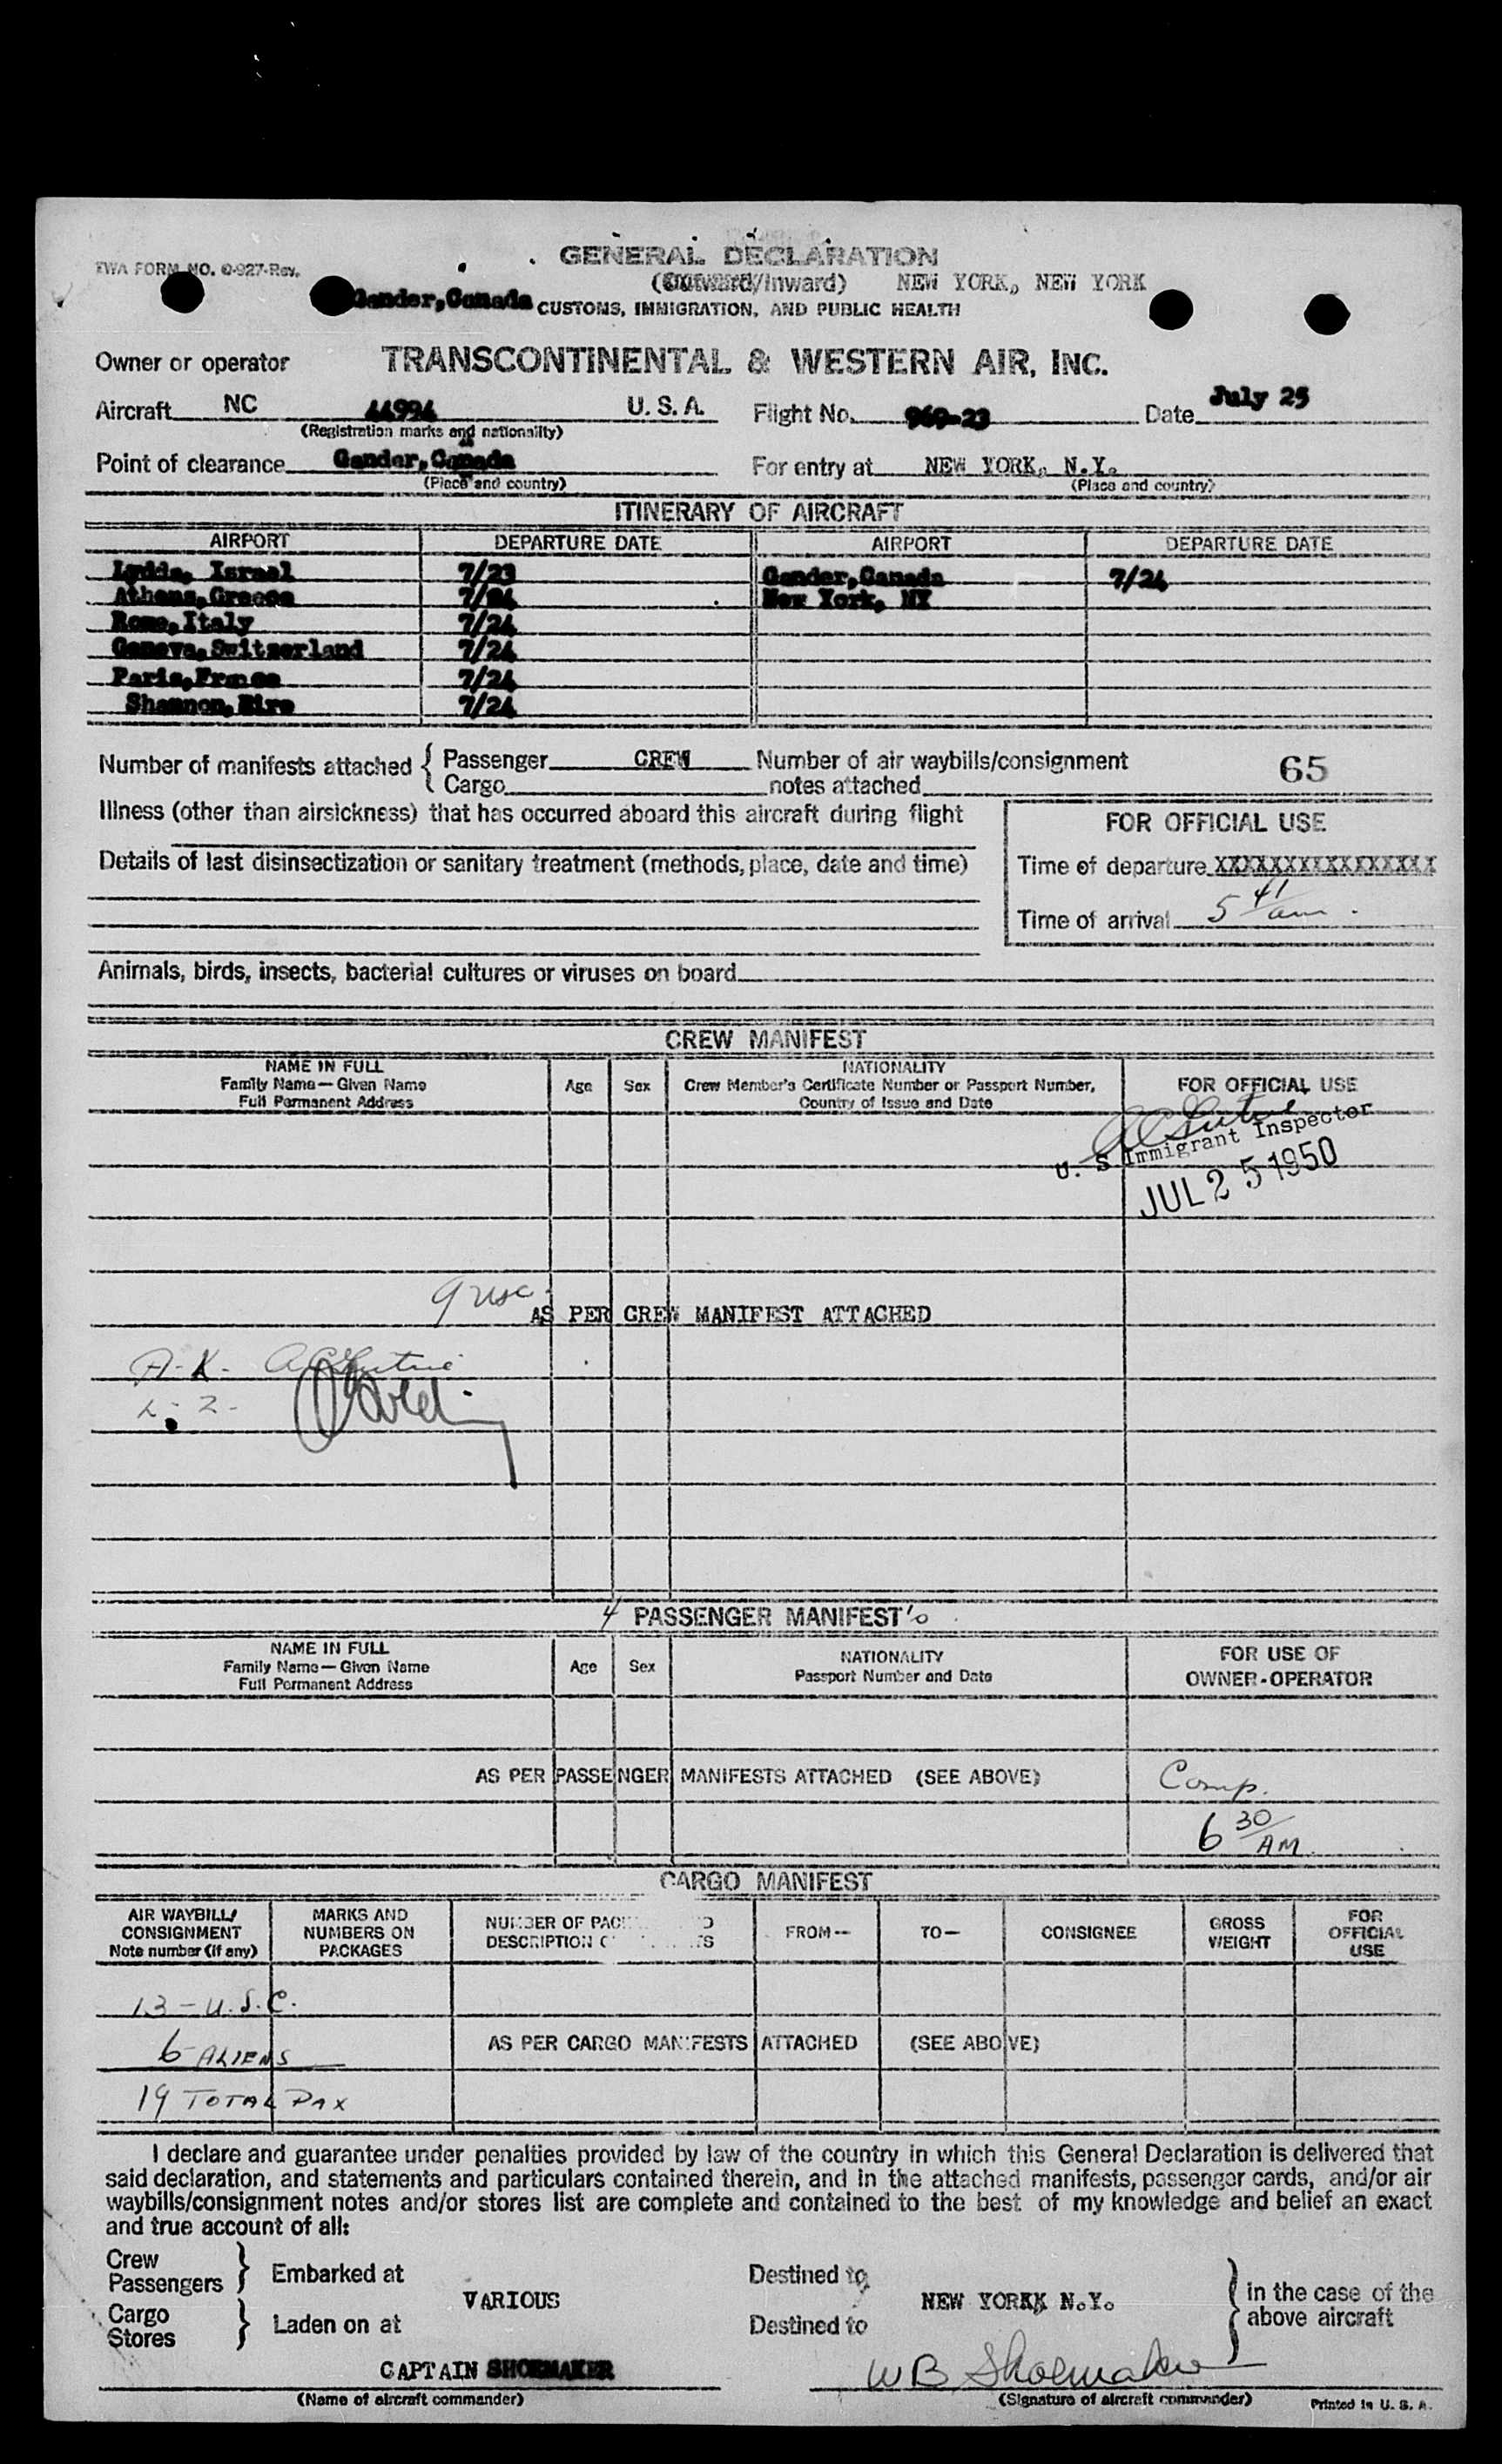 GENERAL DECLARATION
TWA FORM NO. O-927-Rev.
(Outward/Inward) NEW YORK, NEW YORK
Gander,Canada CUSTOMS, IMMIGRATION, AND PUBLIC HEALTH
Owner or operator TRANSCONTINENTAL & WESTERN AIR, INC.
Aircraft NC 44994 U.S.A. Flight No. 969-23 Date July 25
(Registration marks and nationality)
Point of clearance Gander,Canada For entry at NEW YORK, N.Y.
(Place and country) (Place and country)
ITINERARY OF AIRCRAFT
AIRPORT DEPARTURE DATE AIRPORT DEPARTURE DATE
Lydda, Israel 7/23 Gander,Canada 7/24
Athens,Greece 7/24 New York, NY
Rome,Italy 7/24
Geneva,Switzerland 7/24
Paris,France 7/24
Shannon,Eire 7/24
Number of manifests attached { Passenger CREW Number of air waybills/consignment 65
Cargo notes attached
Illness (other than airsickness) that has occurred aboard this aircraft during flight
FOR OFFICIAL USE
Details of last disinsectization or sanitary treatment (methods, place, date and time)
Time of departure XXXXXXXXXXXXXXXX
Time of arrival 5 41/am
Animals, birds, insects, bacterial cultures or viruses on board
CREW MANIFEST
NAME IN FULL
Family Name—Given Name
Full Permanent Address
Age Sex
NATIONALITY
Crew Member's Certificate Number or Passport Number,
Country of Issue and Date
FOR OFFICIAL USE
U. S Immigrant Inspector
JUL 25 1950
9 usc
AS PER CREW MANIFEST ATTACHED
A-K-
L-Z-
4 PASSENGER MANIFEST
NAME IN FULL
Family Name—Given Name
Full Permanent Address
Age Sex
NATIONALITY
Passport Number and Date
FOR USE OF
OWNER-OPERATOR
AS PER PASSENGER MANIFESTS ATTACHED (SEE ABOVE)
Comp.
6 30/AM
CARGO MANIFEST
AIR WAYBILL/
CONSIGNMENT
Note number (if any)
MARKS AND
NUMBERS ON
PACKAGES
NUMBER OF
DESCRIPTION
FROM—
TO—
CONSIGNEE
GROSS
WEIGHT
FOR
OFFICIAL
USE
13-U.S.C.
6 ALIENS
AS PER CARGO MANIFESTS ATTACHED (SEE ABOVE)
19 TOTAL PAX
I declare and guarantee under penalties provided by law of the country in which this General Declaration is delivered that
said declaration, and statements and particulars contained therein, and in the attached manifests, passenger cards, and/or air
waybills/consignment notes and/or stores list are complete and contained to the best of my knowledge and belief an exact
and true account of all:
Crew
Passengers } Embarked at
Destined to
VARIOUS NEW YORKK N.Y.
Cargo
Stores } Laden on at
Destined to
in the case of the
above aircraft
CAPTAIN SHOEMAKER
WB Shoemaker
(Name of aircraft commander) (Signature of aircraft commander) Printed in U. S. A.